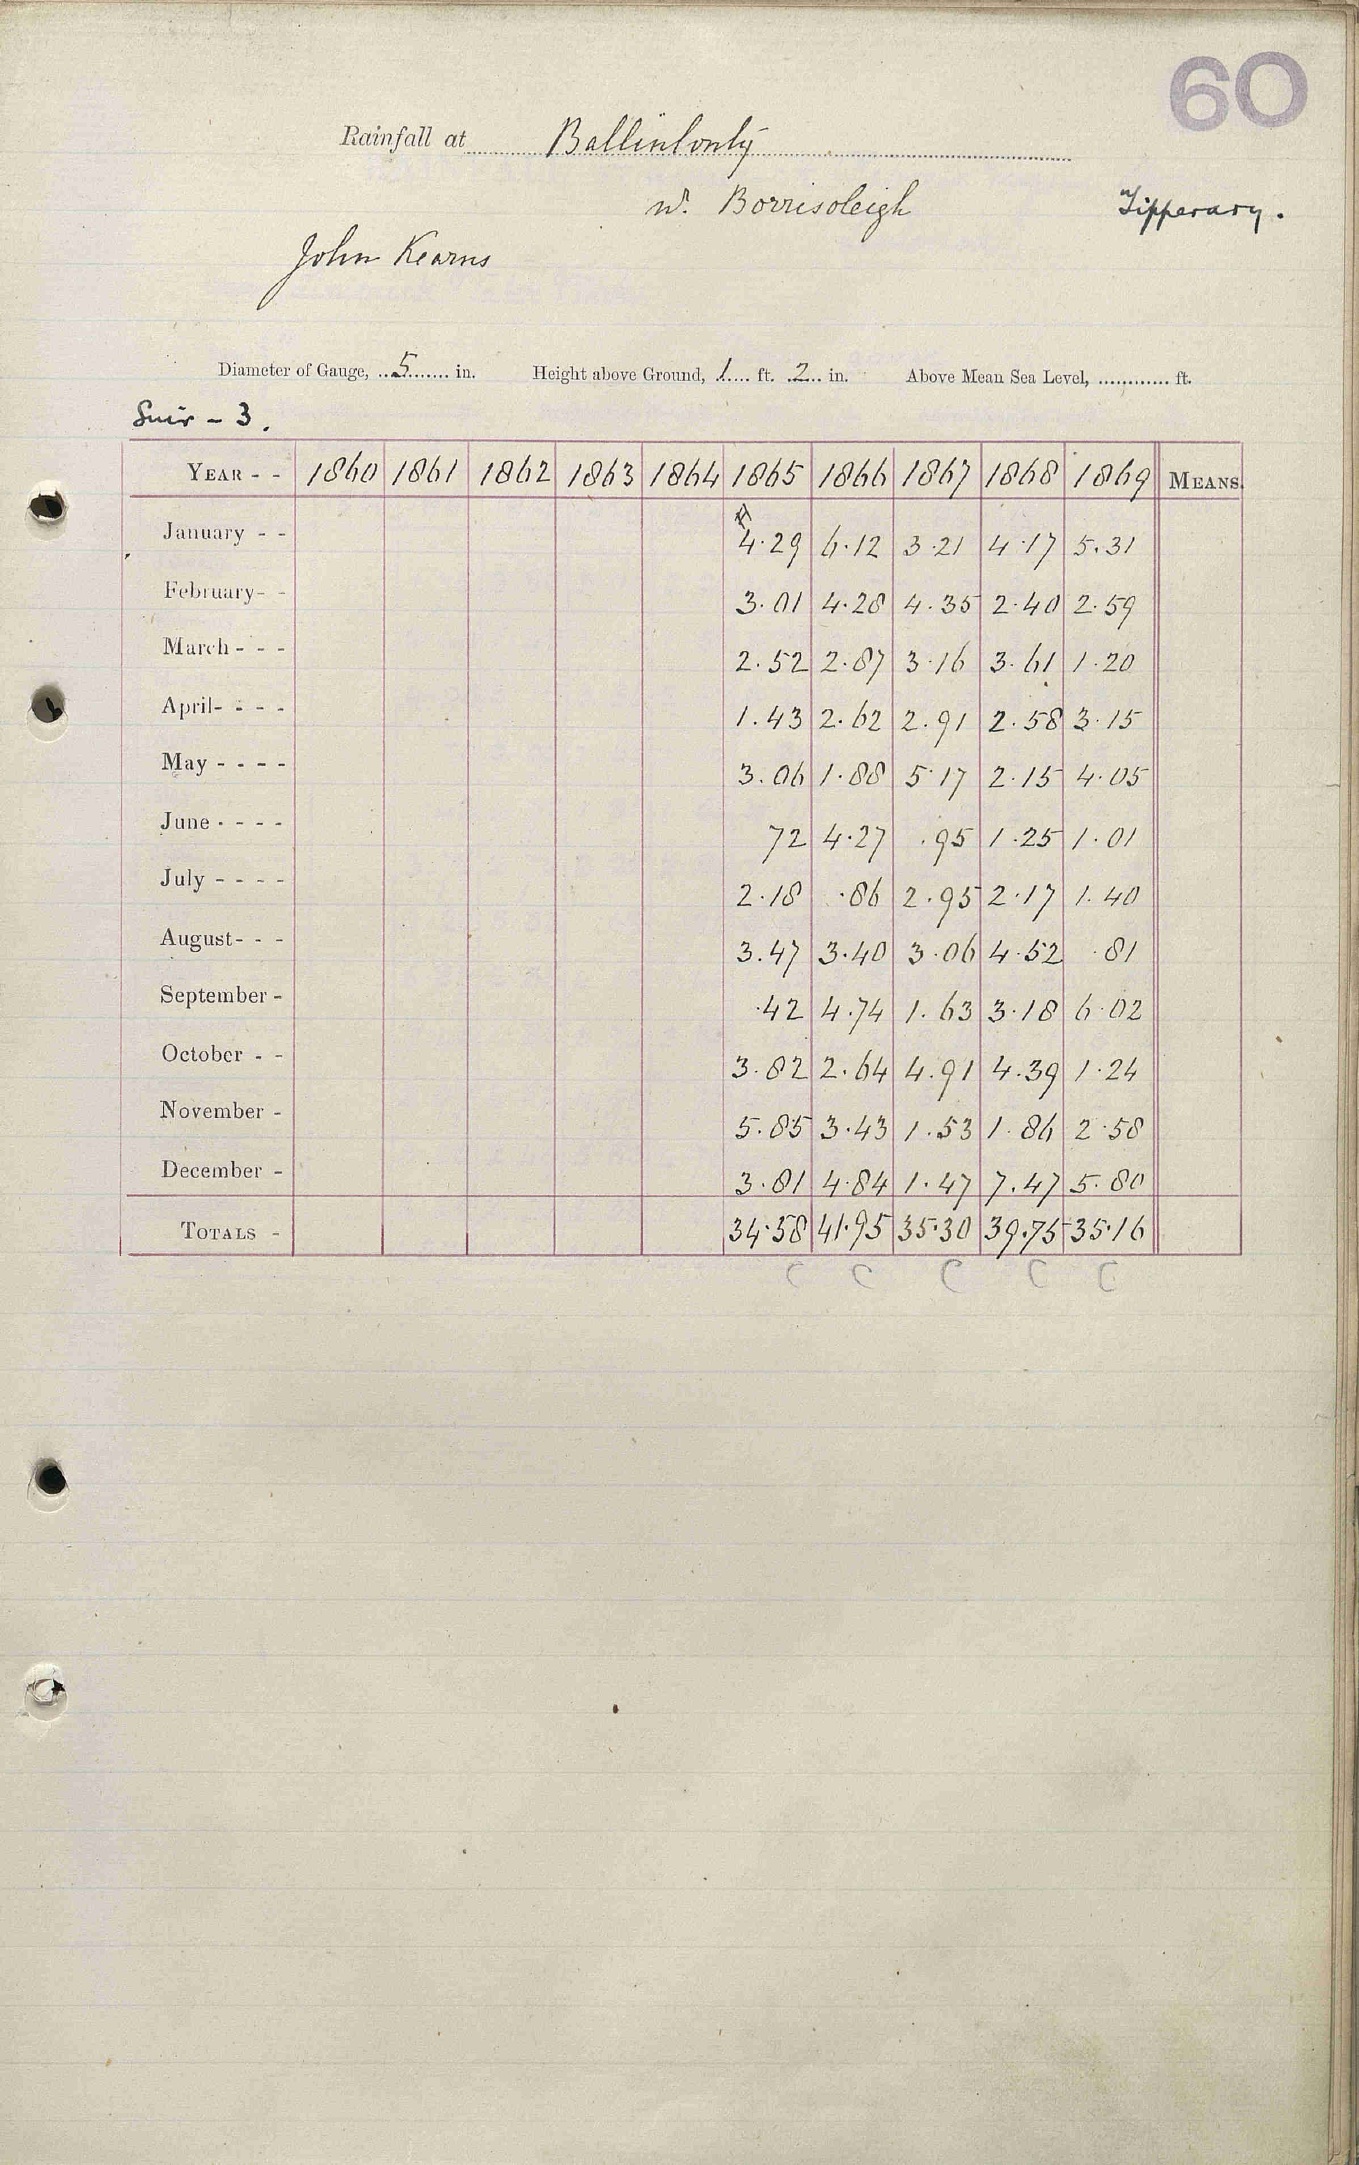 60
Rainfall at Ballinlonty
nr. Borrisoleigh Tipperary.
John Kearns
Diameter of Gauge, 5 in. Height above Ground, 1 ft. 2 in. Above Mean Sea Level, ............ ft.
Suir - 3.
YEAR - - 1860 1861 1862 1863 1864 1865 1866 1867 1868 1869 MEANS.
January - - 4.29 6.12 3.21 4.17 5.31
February - - 3.01 4.28 4.35 2.40 2.59
March - - - 2.52 2.87 3.16 3.61 1.20
April - - - - 1.43 2.62 2.91 2.58 3.15
May - - - - 3.06 1.88 5.17 2.15 4.05
June - - - - 72 4.27 .95 1.25 1.01
July - - - - 2.18 .86 2.95 2.17 1.40
August - - - 3.47 3.40 3.06 4.52 .81
September - .42 4.74 1.63 3.18 6.02
October - - 3.82 2.64 4.91 4.39 1.24
November - 5.85 3.43 1.53 1.86 2.58
December - 3.81 4.84 1.47 7.47 5.80
TOTALS - 34.58 41.95 35.30 39.75 35.16
C C C C C